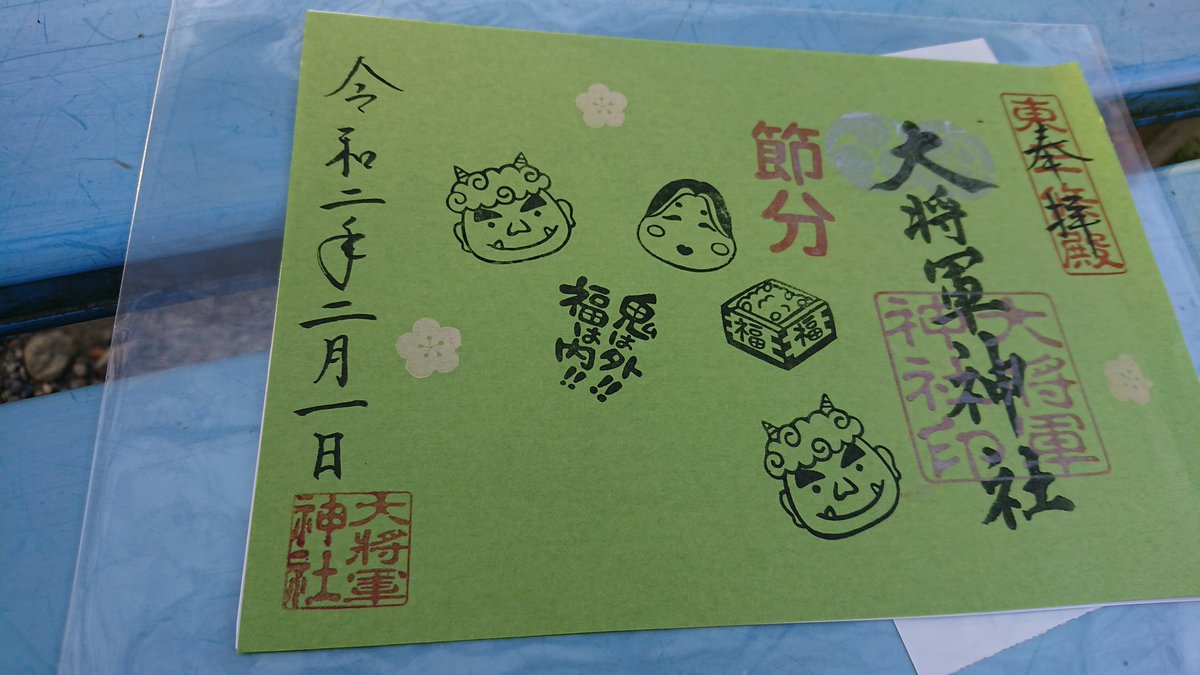 奉拝
東三條殿
大将軍神社
大将軍
神社印
節分
福
福
鬼は外!!
福は内!!
令和二年二月一日
大将軍
神社